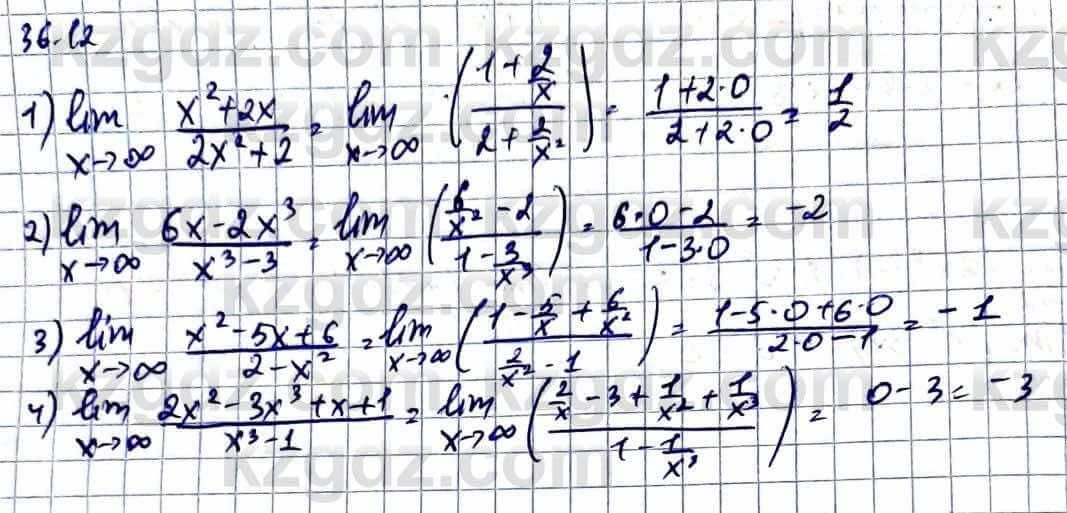 36.12
1) lim x→∞ (x²+2x)/(2x²+2) = lim x→∞ ((1+2/x)/(2+2/x²)) = (1+2·0)/(2+2·0) = 1/2
2) lim x→∞ (6x-2x³)/(x³-3) = lim x→∞ ((6/x²-2)/(1-3/x³)) = (6·0-2)/(1-3·0) = -2
3) lim x→∞ (x²-5x+6)/(2-x²) = lim x→∞ ((1-5/x+6/x²)/(2/x²-1)) = (1-5·0+6·0)/(2·0-1) = -1
4) lim x→∞ (2x²-3x³+x+1)/(x³-1) = lim x→∞ ((2/x-3+1/x²+1/x³)/(1-1/x³)) = 0-3 = -3
kzgdz.com